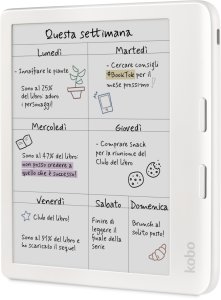 Questa settimana
Lunedì
- Innaffiare le piante
Sono al 25%
del libro: adoro
i personaggi!
Martedì
- Cercare consigli
#BookTok per il
mese prossimo
Mercoledì
Sono al 47% del libro:
non posso credere a
quello che è successo!
Giovedì
- Comprare Snack
per la riunione del
Club del libro
Venerdì
Club del libro!
Sono al 91% del libro e
ho scaricato il sequel
Sabato
Finire di
leggere il
finale della
serie
Domenica
Brunch al
solito posto!
kobo